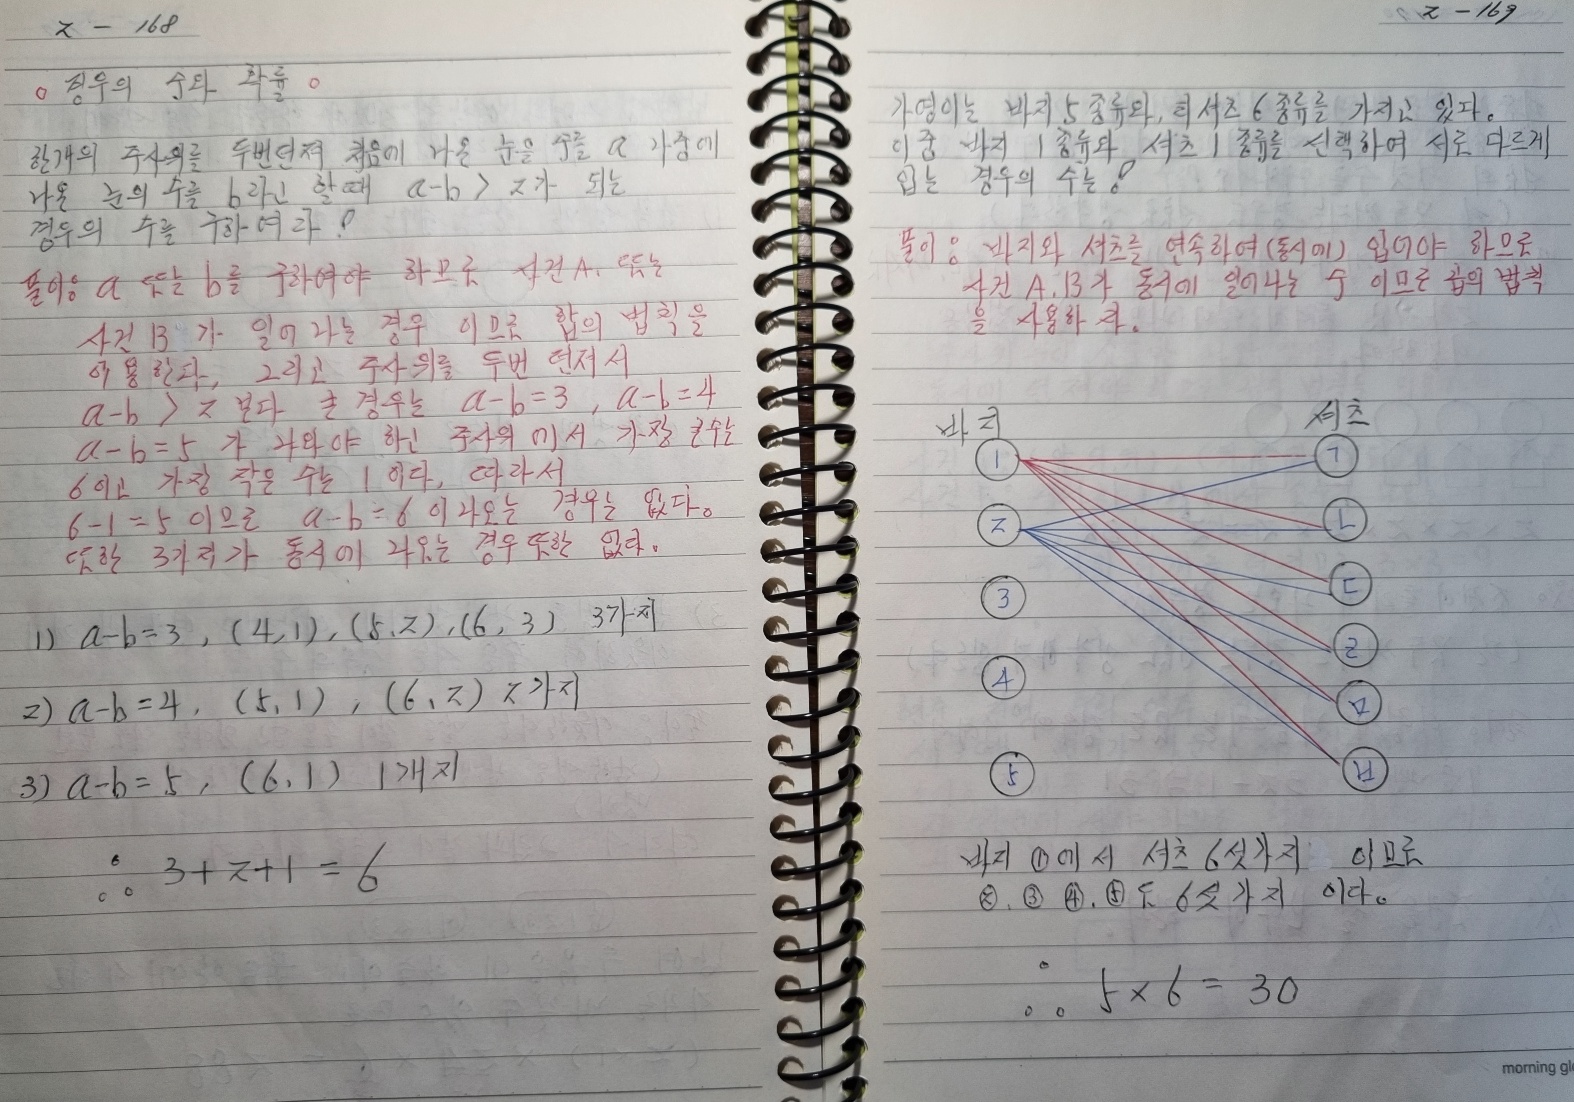 2 - 168
경우의 수와 확률
한개의 주사위를 두번던져 처음에 나온 눈을 수를 a 나중에
나온 눈의 수를 b라고 할때 a-b > 2가 되는
경우의 수를 구하여라!
풀이: a 또는 b를 구하여야 하므로 사건A. 또는
사건 B가 일어나는 경우 이므로 합의 법칙을
이용한다, 그리고 주사위를 두번 던져서
a-b > 2 보다 큰 경우는 a-b=3, a-b=4
a-b=5가 나와야 하고 주사위에서 가장 큰수는
6이고 가장 작은 수는 1이다, 따라서
6-1=5이므로 a-b=6이 나오는 경우는 없다。
또한 3가지가 동시에 나오는 경우 또한 없다.
1) a-b=3, (4,1), (5.2), (6, 3) 3가지
2) a-b=4, (5,1), (6,2) 2가지
3) a-b=5, (6,1) 1개지
∴ 3+2+1=6
2 - 169
가영이는 바지 5종류와, 티셔츠 6종류를 가지고 있다。
이중 바지 1종류와 셔츠 1종류를 선택하여 서로 다르게
입는 경우의 수는?
풀이: 바지와 셔츠를 연속하여(동시에) 입어야 하므로
사건 A.B가 동시에 일어나는 수 이므로 곱의 법칙
을 사용하자.
바지 셔츠
1 ㄱ
2 ㄴ
3 ㄷ
4 ㄹ
5 ㅁ
ㅂ
바지 ①에서 셔츠 6섯가지 이므로
②.③ ④.⑤도 6섯가지 이다。
∴ 5×6 = 30
morning gl